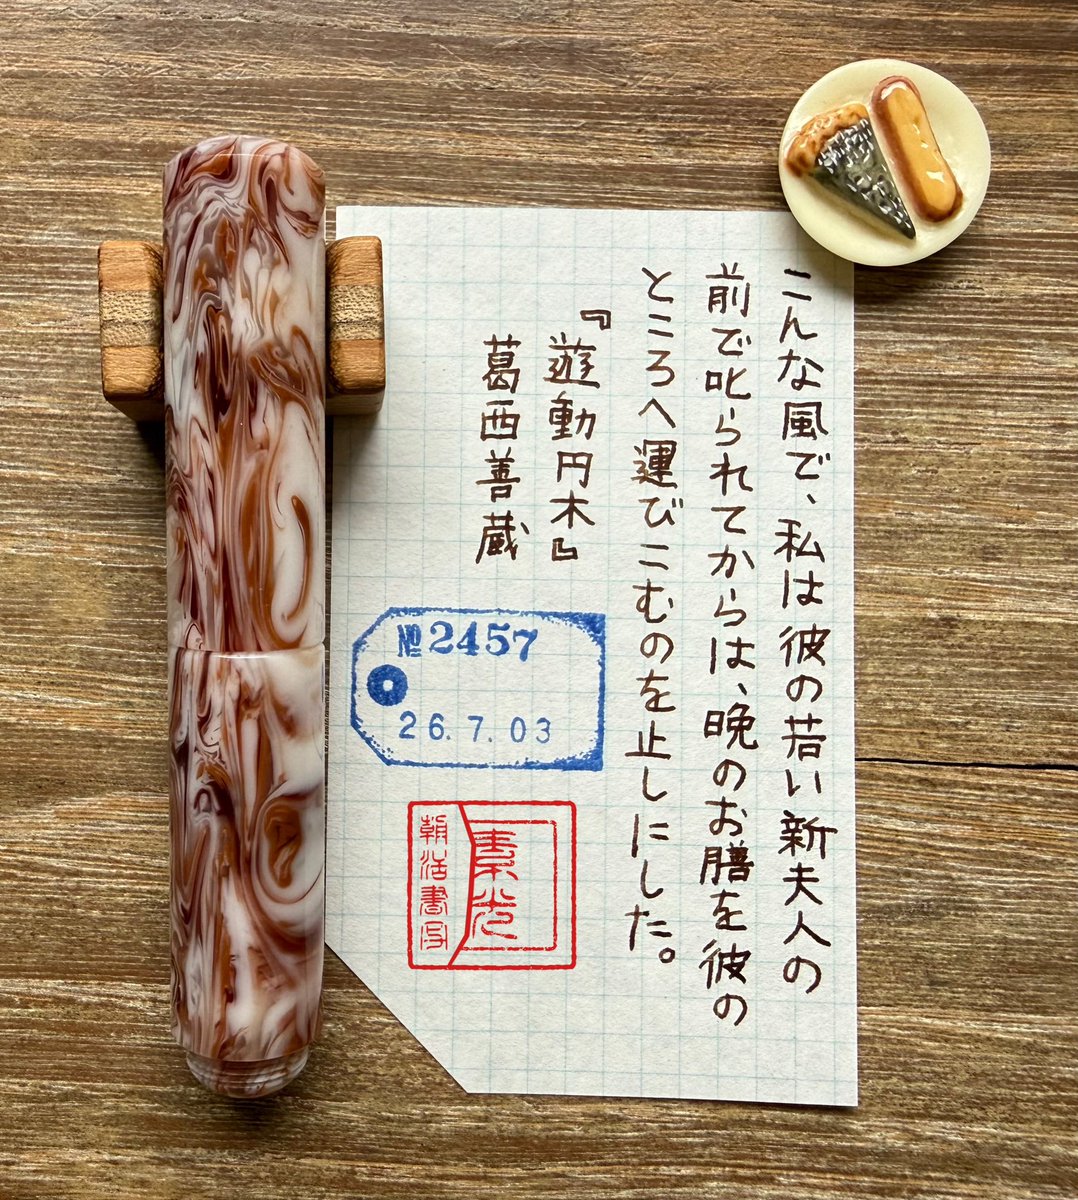 こんな風で、私は彼の若い新夫人の
前で叱られてからは、晩のお膳を彼の
ところへ運びこむのを止しにした。
『遊動円木』
葛西善蔵
№2457
26.7.03
素光
朝活書写